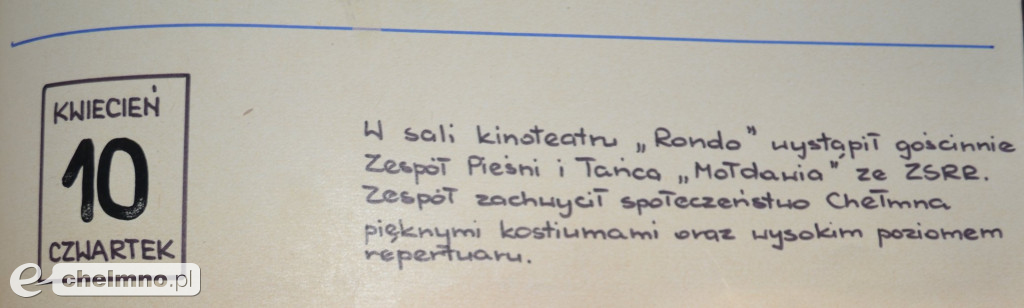 KWIECIEŃ
10
CZWARTEK
W sali kinoteatru „Rondo" wystąpił gościnnie
Zespół Pieśni i Tańca „Mołdawia" ze ZSRR.
Zespół zachwycił społeczeństwo Chełmna
pięknymi kostiumami oraz wysokim poziomem
repertuaru.
e-chelmno.pl